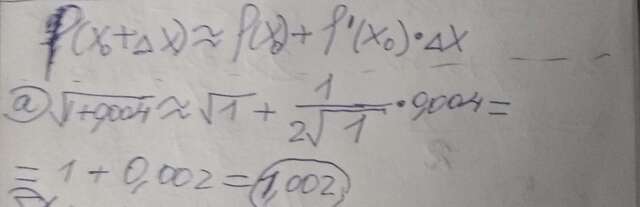 f(x₀+Δx)≈f(x₀)+f'(x₀)·Δx
a) √(1+0,004) ≈ √1 + 1/(2√1) · 0,004 =
= 1 + 0,002 = 1,002